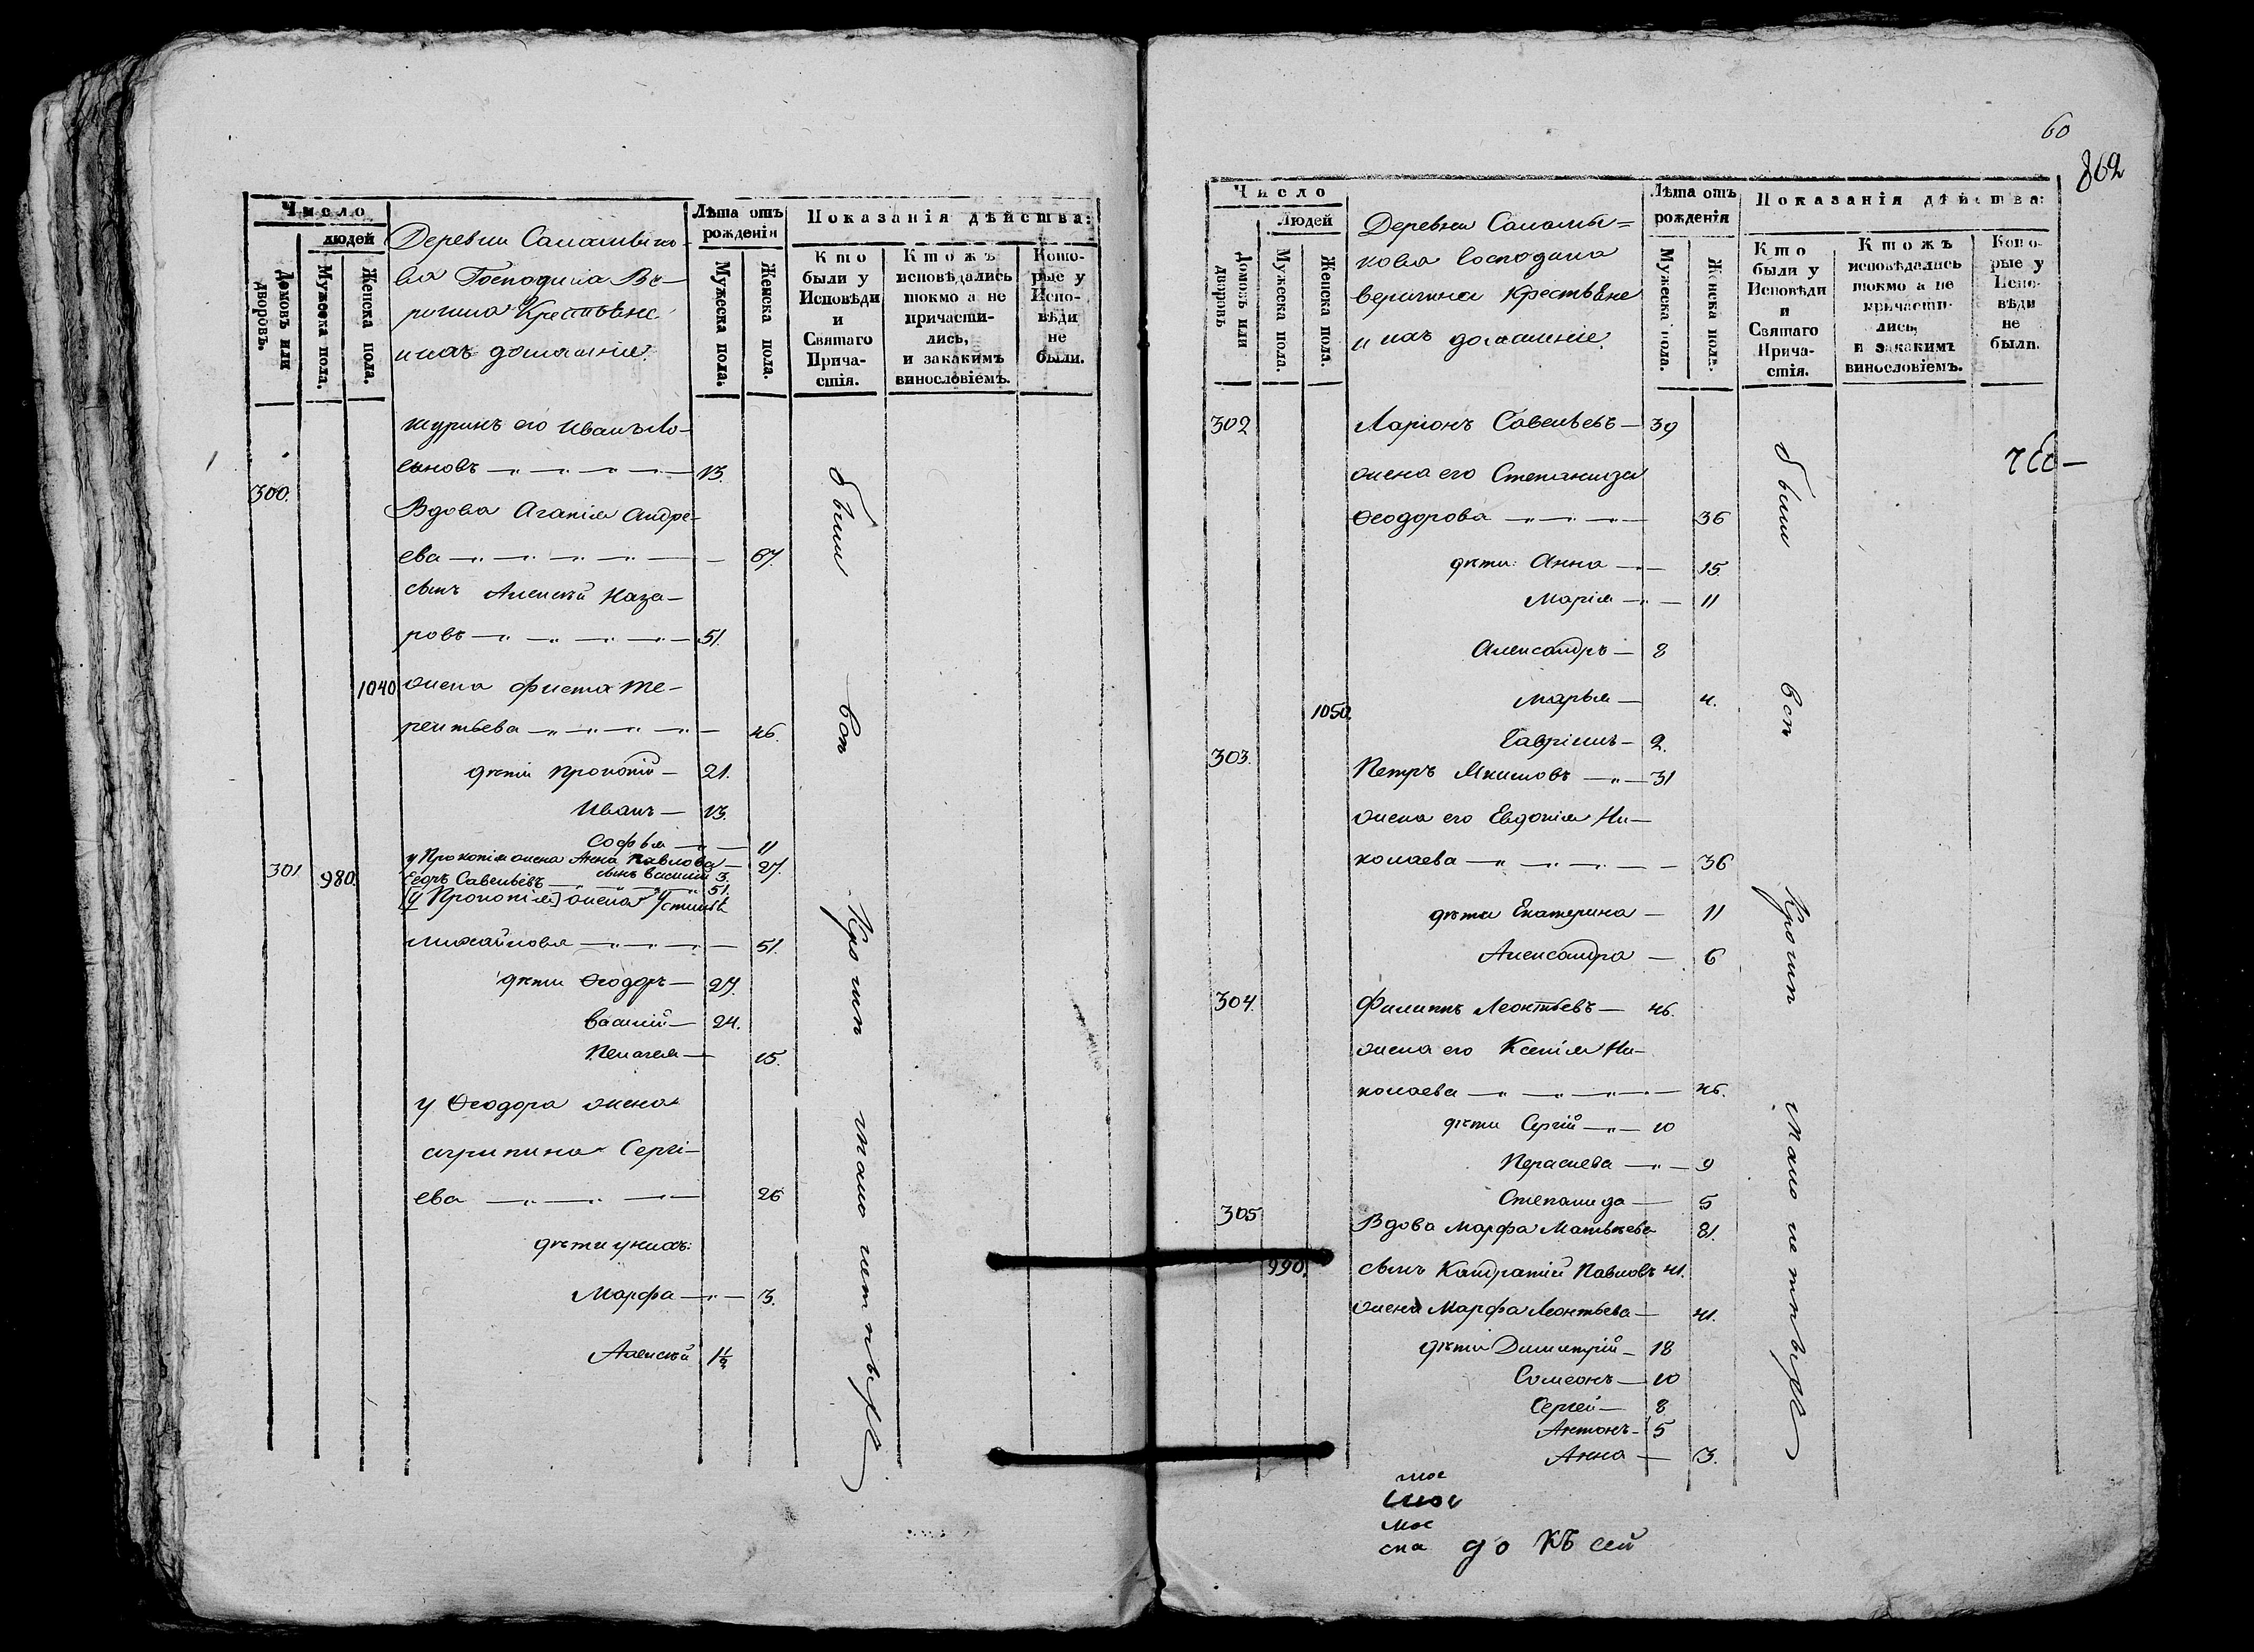 Число
Людей
Домовъ или дворовъ.
Мужеска пола.
Женска пола.
Лѣта отъ рожденія
Мужеска пола.
Женска пола.
Показанія дѣйства:
Кто были у Исповѣди и Святаго Причастія.
Ктожъ исповѣдались токмо а не причастились, и закакимъ винословіемъ.
Которые у Исповѣди не были.
Деревни Саламыко-
ва Господина Ве-
ригина Крестьяне
и ихъ домашніе.
шуринъ его Иванъ Ло-
гиновъ 13.
300. Вдова Агапія Андре-
ева 67.
сынъ Алексѣй Наза-
ровъ 51.
1040 жена Фиста Те-
рентьева 46.
дѣти Прокопій 21.
Иванъ 13.
Софья 11
у Прокопія жена Анна Павлова 27.
сынъ Василій 3.
301 980. Егоръ Савельевъ 51.
[у Прокопія] жена Устинья
Михайлова 51.
дѣти Ѳеодоръ 27.
Василій 24.
Пелагея 15.
у Ѳеодора жена
Агрипина Сергі-
ева 26
дѣти у нихъ:
Марфа 3.
Алексѣй 1½
были
всѣ
60
862
Число
Людей
Домовъ или дворовъ
Мужеска пола.
Женска пола.
Лѣта отъ рожденія
Мужеска пола.
Женска пола.
Показанія дѣйства:
Кто были у Исповѣди и Святаго Причастія.
Ктожъ исповѣдались токмо а не причастились, и закакимъ винословіемъ.
Которые у Исповѣди не были.
Деревни Саламы=
кова Господина
Веригина Крестьяне
и ихъ домашніе.
302 Ларіонъ Савельевъ 39
жена его Степанида
Ѳеодорова 36
дѣти: Анна 15
Марія 11
Александръ 8
1050. Марья 4.
Гавріилъ 2.
303. Петръ Якимовъ 31
жена его Евдокія Ни-
колаева 36
дѣти Екатерина 11
Александра 6
304. Филиппъ Леонтьевъ 46.
жена его Ксенія Ни-
колаева 46.
дѣти Сергій 10
Параскева 9
Степанида 5
305 Вдова Марфа Матвѣева 81.
990. сынъ Кандратій Павловъ 41.
жена Марфа Леонтьева 41.
дѣти Димитрій 18
Симеонъ 10
Сергей 8
Антонъ 5
Анна 3.
были
всѣ
мое
мое
до къ сей